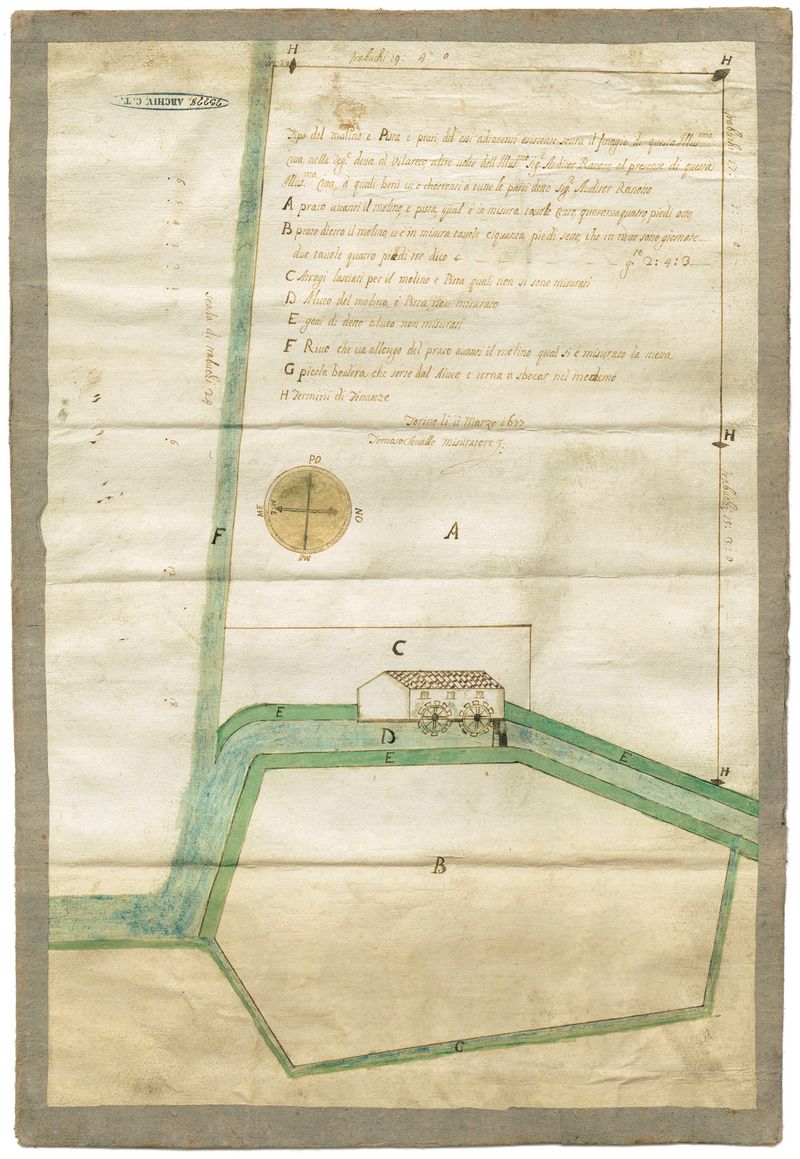 H
trabuchi 19: 4 0
H
25228 ARCHIV. C. T.
Tipo del molino e Pista e prati dal essi adiacenti esistente soura il finagio di questa Illus.ma
Citta nella reg.e detta al Vilaretto altre uolte dell Illus.mo Sig.r Auditor Ranotto al presente di questa
Illus.ma Citta, a quali beni ui e cherrenti a tutte le parti detto Sig.r Auditor Ranotto
A prato auanti il molino, e pista qual' è in misura tauole Cento quarantaquatro piedi otto
B prato dietro il molino, et è in misura tauole Ciquanta piedi sette, che in tutto sono giornate
due tauole quatro piedi tre dico g.te 2: 4: 3
C Airagi lasciati per il molino e Pista quali non si sono misurati
D Alueo del molino, e Pista non misurato
E gerai di detto alueo non misurati
F Riuo che ua allongo del prato auanti il molino qual si è misurato la metta
G picola bealera che sorte dal Alueo e torna a sbocar nel medemo
H Termini di Finanze
Torino li 11 Marzo 1677
Tomaso Seualle misuratore
trabuchi 17: 2 0
scala di trabuchi 24
H
trabuchi 15: 3: 0
6
12
18
PO
ME
NO
F
A
C
E
D
E
E
H
B
G